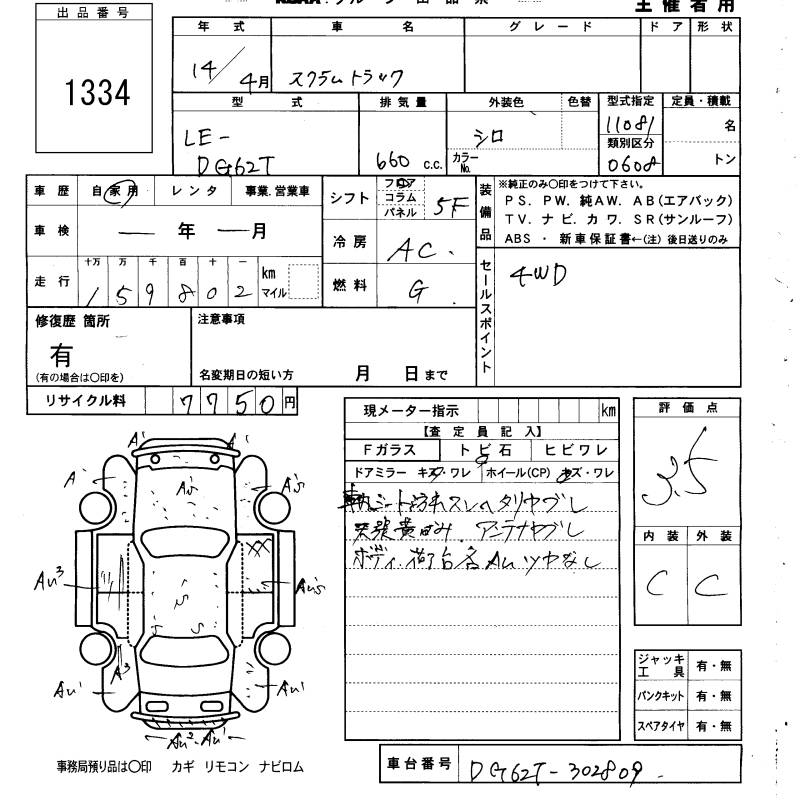 主催者用
出品番号
1334
年式 車名 グレード ドア 形状
14/4月 スクラムトラック
型式 排気量 外装色 色替 型式指定 定員・積載
LE-
DG62T 660 c.c. シロ カラーNo. 11081 名
類別区分
0608 トン
車歴 自家用 レンタ 事業.営業車
車検 — 年 — 月
走行 十万 万 千 百 十 一
159802 km マイル
シフト フロア コラム パネル 5F
冷房 AC.
燃料 G
装備品 ※純正のみ〇印をつけて下さい。
PS. PW. 純AW. AB(エアバック)
TV. ナビ. カワ. SR(サンルーフ)
ABS ・ 新車保証書←(注) 後日送りのみ
セールスポイント 4WD
修復歴 箇所
有
(有の場合は〇印を)
注意事項
名変期日の短い方 月 日まで
リサイクル料 7750円
現メーター指示 km
【査定員記入】
Fガラス トビ石 ヒビワレ
ドアミラー キズ・ワレ ホイール(CP) キズ・ワレ
アンテナヤブレ
ボディ.荷台各AUツヤなし
評価点
3.5
内装 外装
C C
ジャッキ工具 有・無
パンクキット 有・無
スペアタイヤ 有・無
A' A'
A' AU'S A'S
AU3 AU'S
S
S S
A3
AU' AU'
AU2 AU'
事務局預り品は〇印 カギ リモコン ナビロム
車台番号 DG62T-302809